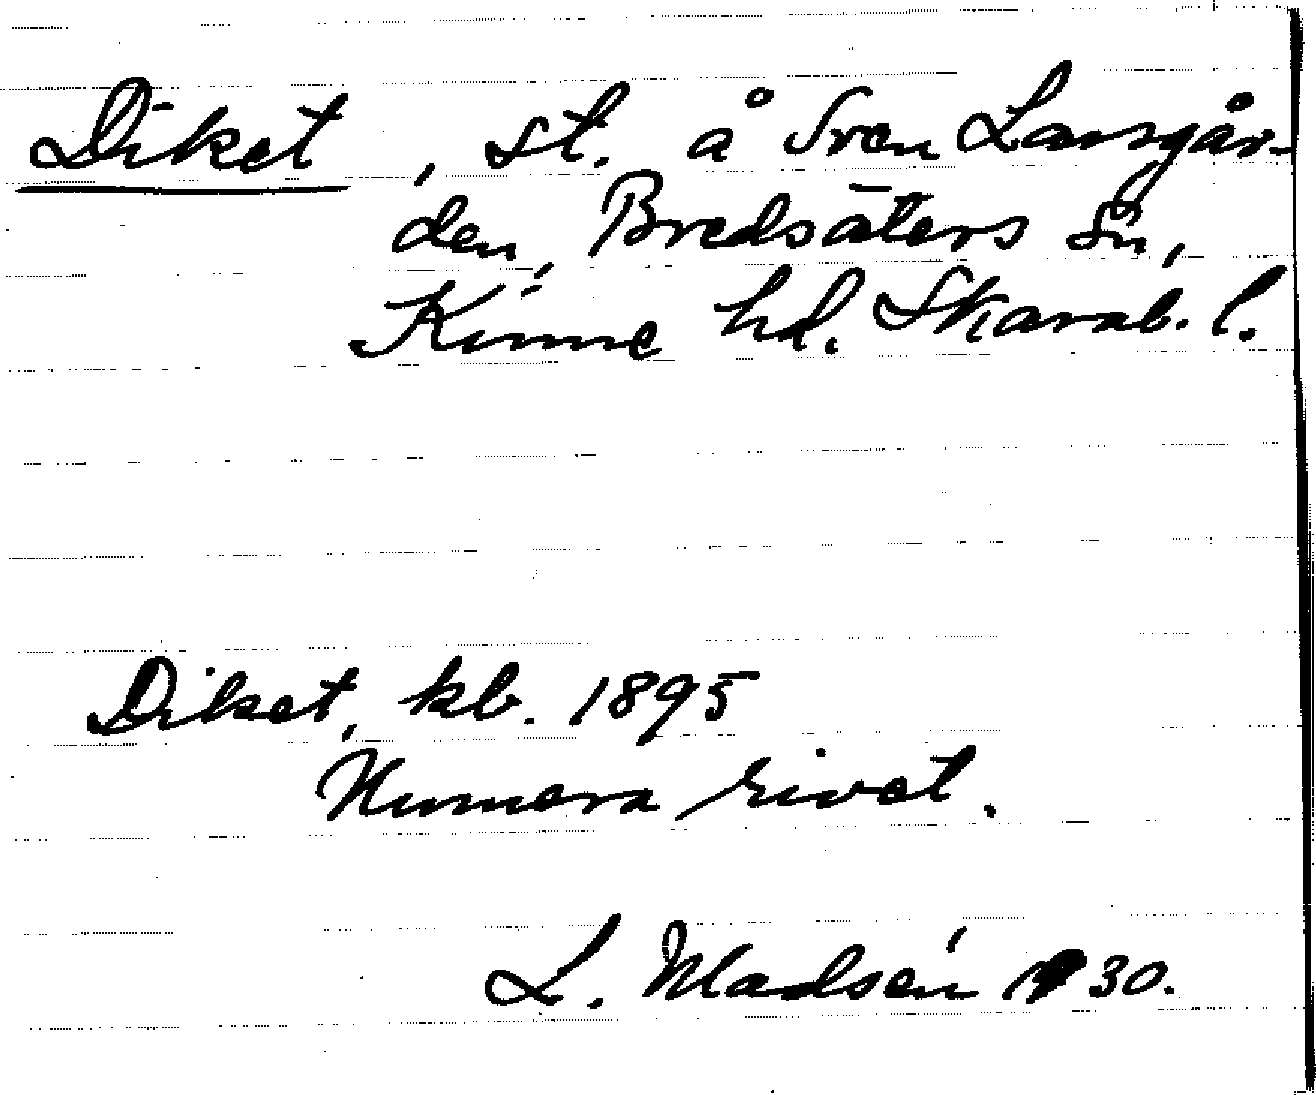 Diket, st. å Sven Larsgår-
den, Bredsäters sn,
Kinne hd. Skarab. l.
Diket, kb. 1895
Numera rivet.
L. Madsén 30.